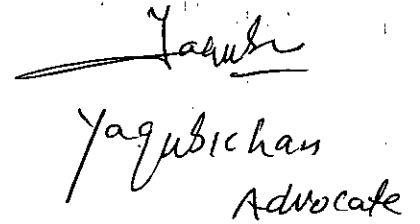 Yaqubi
Yaqubkhan
Advocate